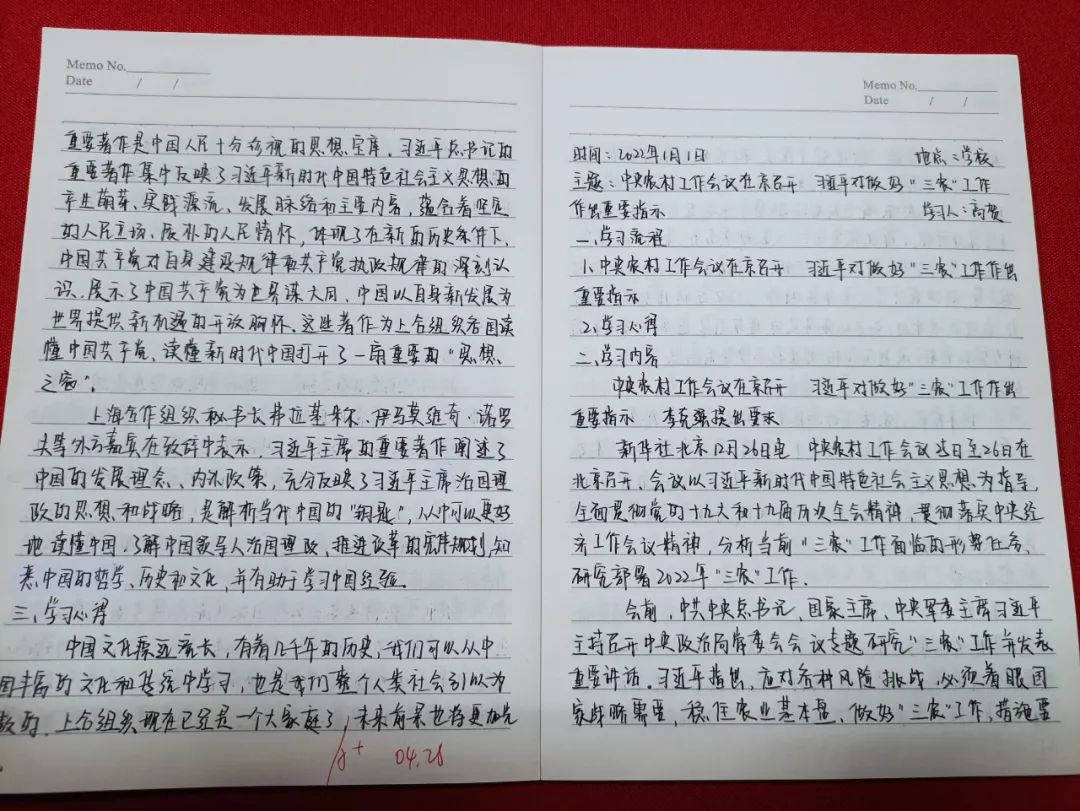 Memo No.
Date / /
重要著作是中国人民十分珍视的思想宝库。习近平总书记的
重要著作集中反映了习近平新时代中国特色社会主义思想的
产生萌芽、实践源流、发展脉络和主要内容，蕴含着坚定
的人民立场、质朴的人民情怀，体现了在新的历史条件下，
中国共产党对自身建设规律和共产党执政规律的深刻认
识，展示了中国共产党为世界谋大同、中国以自身新发展为
世界提供新机遇的开放胸怀。这些著作为上合组织各国读
懂中国共产党、读懂新时代中国打开了一扇重要的“思想
之窗”。
上海合作组织秘书长弗拉基米尔·伊马莫维奇·诺罗
夫等外方嘉宾在致辞中表示，习近平主席的重要著作阐述了
中国的发展理念、内外政策，充分反映了习近平主席治国理
政的思想和战略，是解析当代中国的“钥匙”，从中可以更好
地读懂中国，了解中国领导人治国理政、推进改革的宏伟规划，知
悉中国的哲学、历史和文化，并有助于学习中国经验。
三、学习心得
中国文化源远流长，有着几千年的历史，我们可以从中
国丰富的文化和传统中学习，也是我们整个人类社会引以为
傲的。上合组织现在已经是一个大家庭了，未来前景也将更加光
A+ 04.28
Memo No.
Date / /
时间：2022年1月1日 地点：学校
主题：中央农村工作会议在京召开 习近平对做好“三农”工作
作出重要指示 学习人：高贺
一、学习流程
1、中央农村工作会议在京召开 习近平对做好“三农”工作作出
重要指示
2、学习心得
二、学习内容
中央农村工作会议在京召开 习近平对做好“三农”工作作出
重要指示 李克强提出要求
新华社北京12月26日电 中央农村工作会议25日至26日在
北京召开。会议以习近平新时代中国特色社会主义思想为指导，
全面贯彻党的十九大和十九届历次全会精神，贯彻落实中央经
济工作会议精神，分析当前“三农”工作面临的形势任务，
研究部署2022年“三农”工作。
会前，中共中央总书记、国家主席、中央军委主席习近平
主持召开中央政治局常委会会议专题研究“三农”工作并发表
重要讲话。习近平指出，应对各种风险挑战，必须着眼国
家战略需要，稳住农业基本盘、做好“三农”工作，措施要